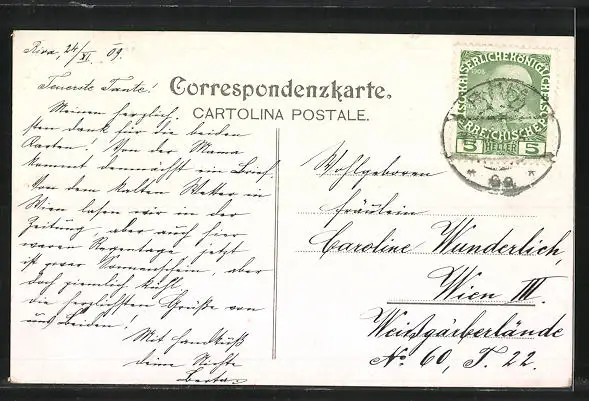 Riva, 24/XI. 09.
Teuerste Tante!
Meinen herzlich-
sten dank für die beiden
Karten! Von der Mama
kommt demnächst ein Brief.
Von dem kalten Wetter in
Wien lasen wir in der
Zeitung, aber auch hier
waren Regentage, jetzt
ist zwar Sonnenschein, aber
doch ziemlich kühl
die herzlichsten Grüße von
uns beiden!
Mit Handkuß
deine Nichte
Berta
Correspondenzkarte.
CARTOLINA POSTALE.
KAISERLICHE KÖNIGLICHE
ÖSTERREICHISCHE
1908
5 HELLER 5
Wohlgeboren
Fräulein
Caroline Wunderlich,
Wien III.
Weißgärberlände
No. 60, T. 22.